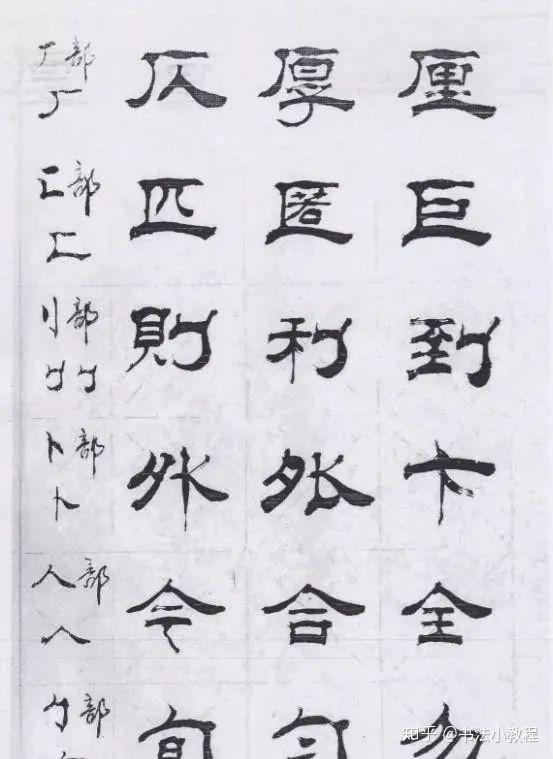 厂部 仄 厚 厘
厂
匚部 匹 匿 巨
匚
刂部 則 利 到
刂刂
卜部 外 外 卞
卜
人部 今 合 全
人
勹部 旬
知乎 @书法小教程